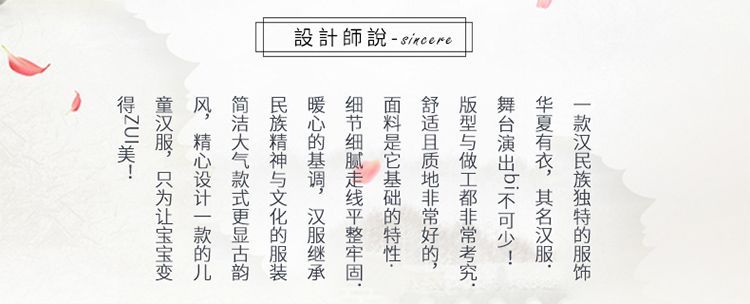 設計師說-sincere
一款汉民族独特的服饰
华夏有衣，其名汉服.
舞台演出bi不可少！
版型与做工都非常考究.
舒适且质地非常好的，
面料是它基础的特性.
细节细腻走线平整牢固.
暖心的基调，汉服继承
民族精神与文化的服装
简洁大气款式更显古韵
风，精心设计一款的儿
童汉服，只为让宝宝变
得ZUI美！